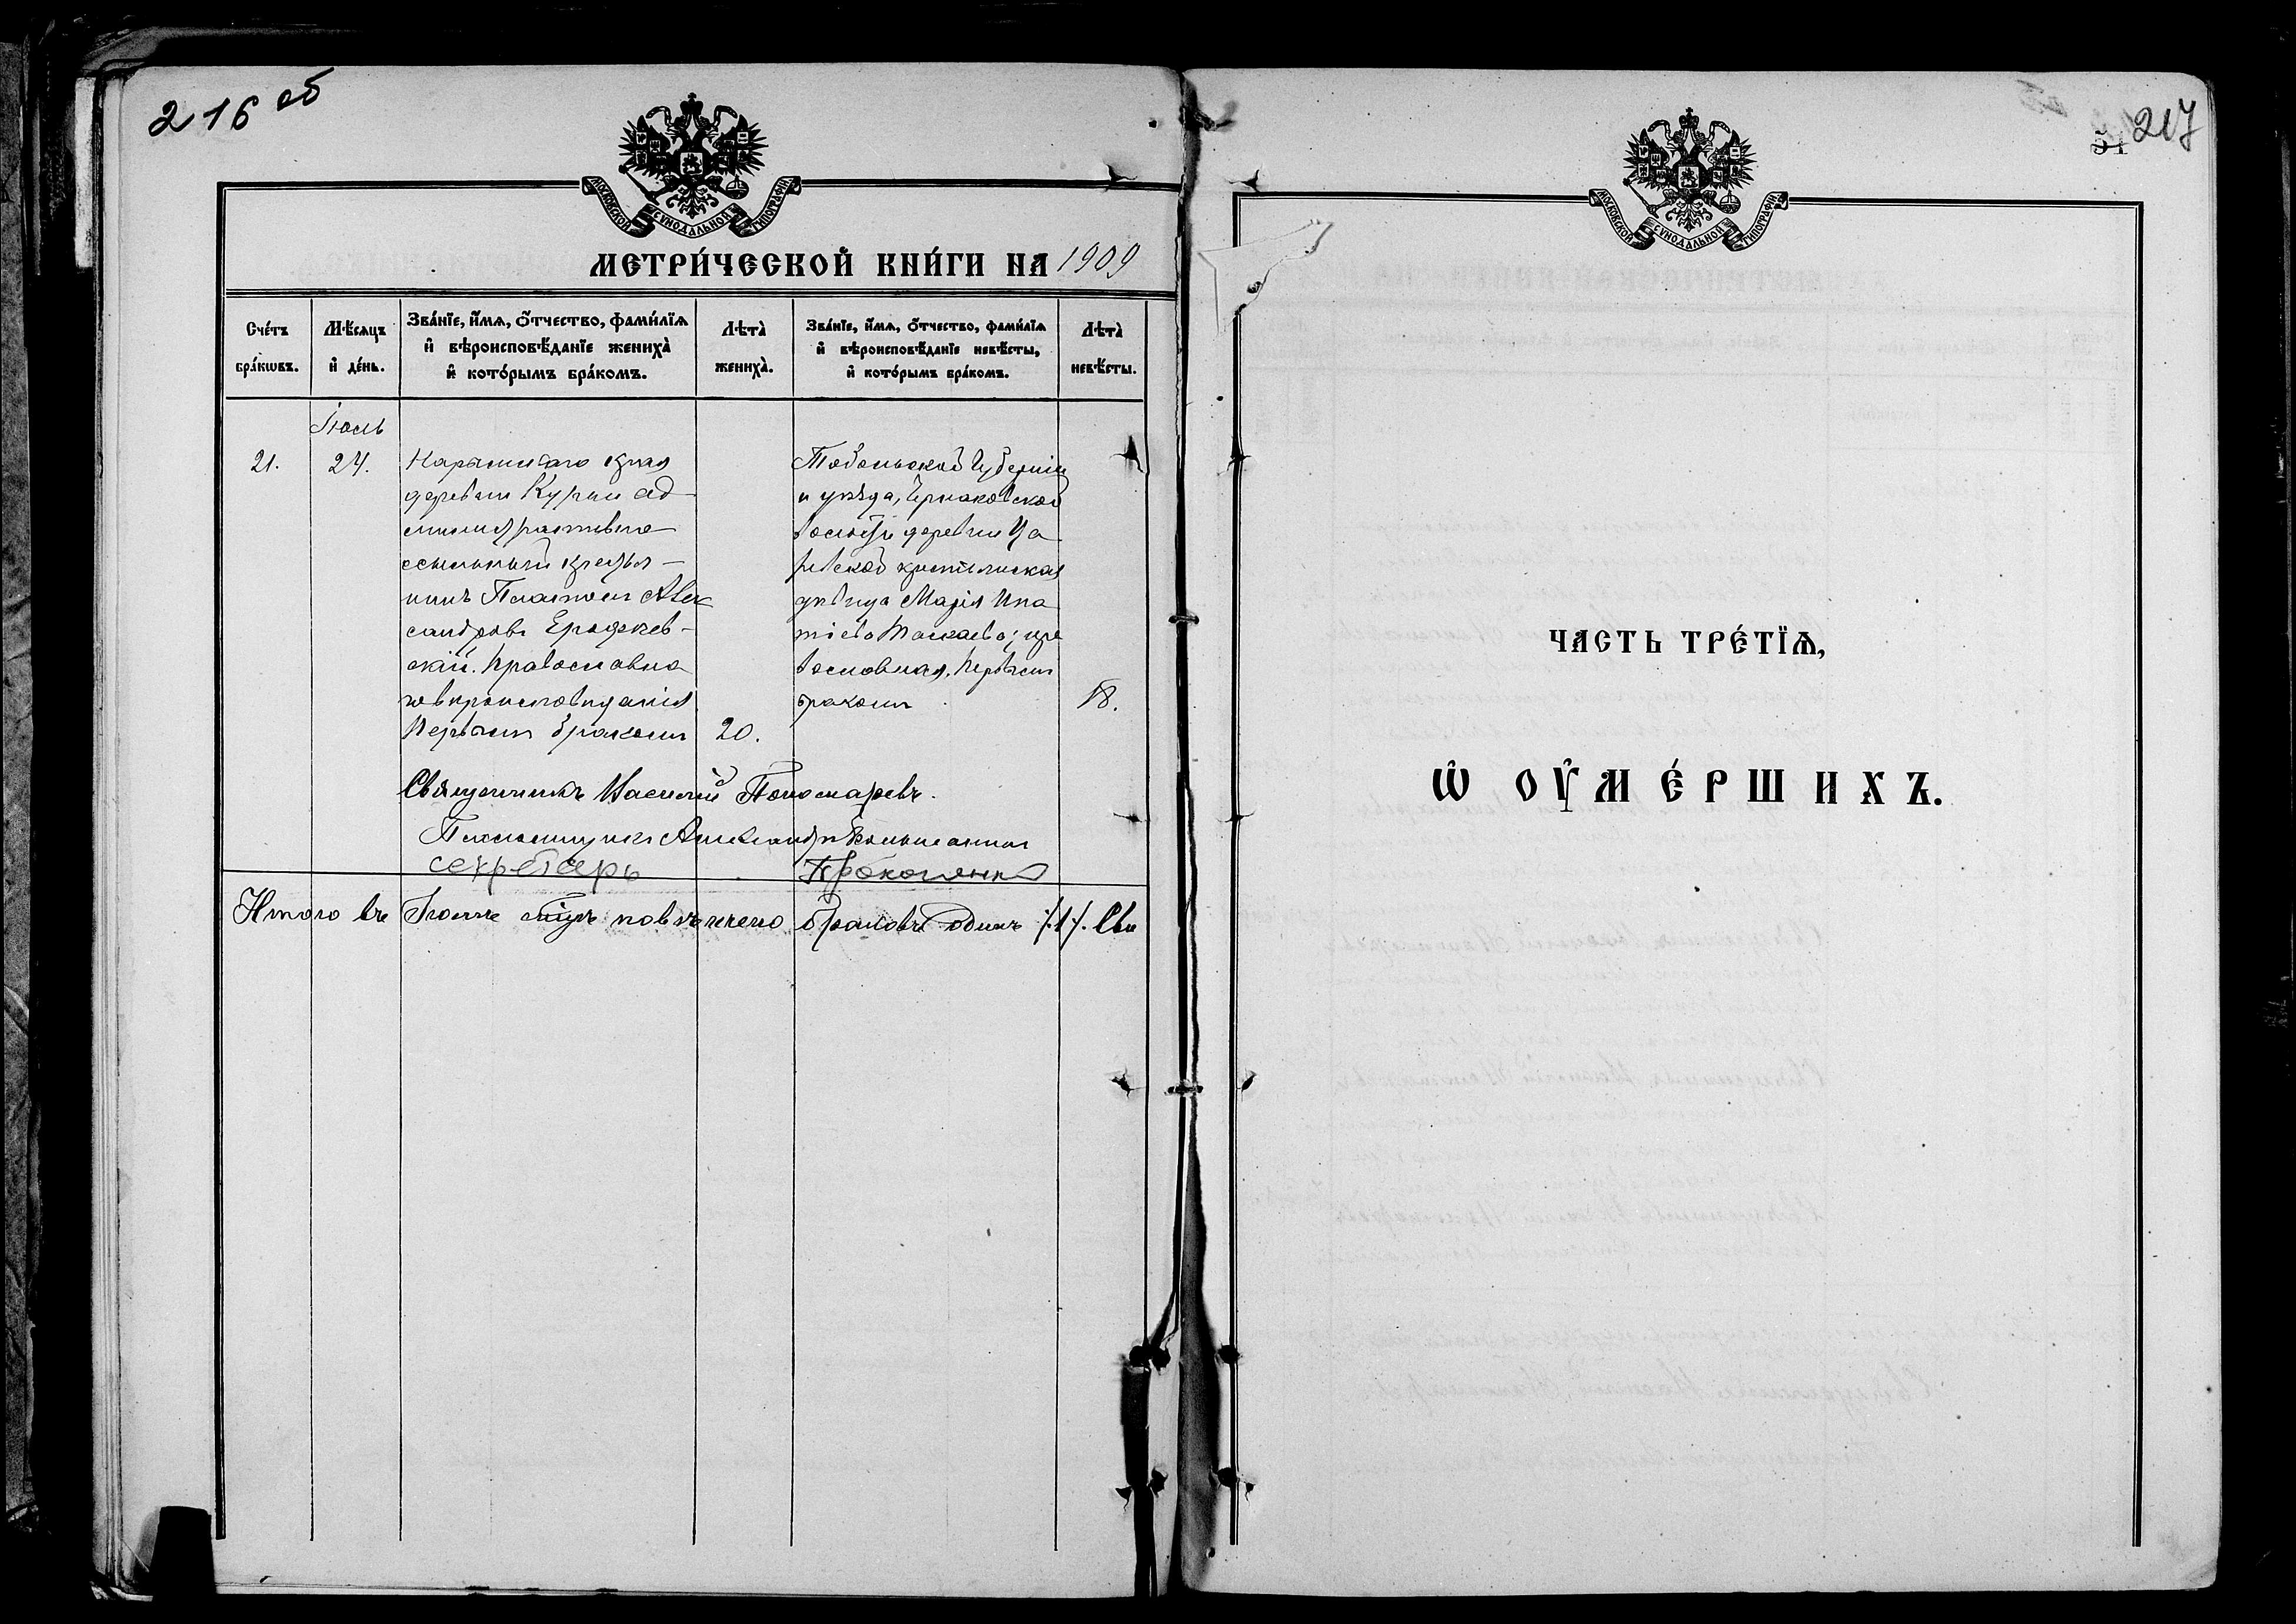 216 об
МОСКОВСКОЙ СѴНОДАЛЬНОЙ ТИПОГРАФІИ
МЕТРИ́ЧЕСКОЙ КНИ́ГИ НА 1909
Сче́тъ бра́кѡвъ.
Мѣ́сяцъ и҆ де́нь.
Зва́нїе, и҆́мя, ѻ҆́тчество, фами́лїя и҆ вѣроисповѣ́данїе жениха̀ и҆ кото́рымъ бра́комъ.
Лѣта̀ жениха̀.
Зва́нїе, и҆́мя, ѻ҆́тчество, фами́лїя и҆ вѣроисповѣ́данїе невѣ́сты, и҆ кото́рымъ бра́комъ.
Лѣта̀ невѣ́сты.
Іюль
21.
24.
Нарымскаго края
деревни Курьи ад
министративно
ссыльный кресть
нинъ Платонъ Алек
сандровъ Ерофеев
скій. православна
го вѣроисповѣданія
Первымъ бракомъ
20.
Тобольской Губерніи
и уѣзда, Ермаковской
волости деревни Ца
ревской крестьянская
дѣвица Марія Ипа
тіева Таскаева; пра
вославная. Первымъ
бракомъ
18.
Священникъ Василій Пономаревъ.
Псаломщикъ Александръ
секретарь
Итого въ Іюлѣ мѣсяцѣ повѣнчено браковъ одинъ /1/. Свя
217
МОСКОВСКОЙ СѴНОДАЛЬНОЙ ТИПОГРАФІИ
ЧАСТЬ ТРЕ́ТЇѦ,
Ѡ҆ ОУ҆МЕ́РШИХЪ.